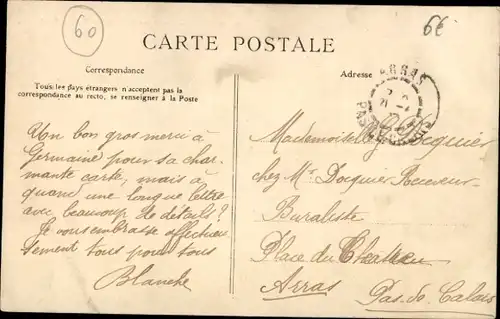 60
6€
CARTE POSTALE
Correspondance
Tous les pays étrangers n'acceptent pas la
correspondance au recto, se renseigner à la Poste
Un bon gros merci à
Germaine pour sa char-
mante carte, mais à
quand une longue lettre
avec beaucoup de détails?
Je vous embrasse affectueu
sement tous pour tous
Blanche
Adresse
ARRAS
PAS
Mademoiselle G.
chez Mr Docquier Receveur-
Buraliste
Place du Théâtre
Arras
Pas-de-Calais